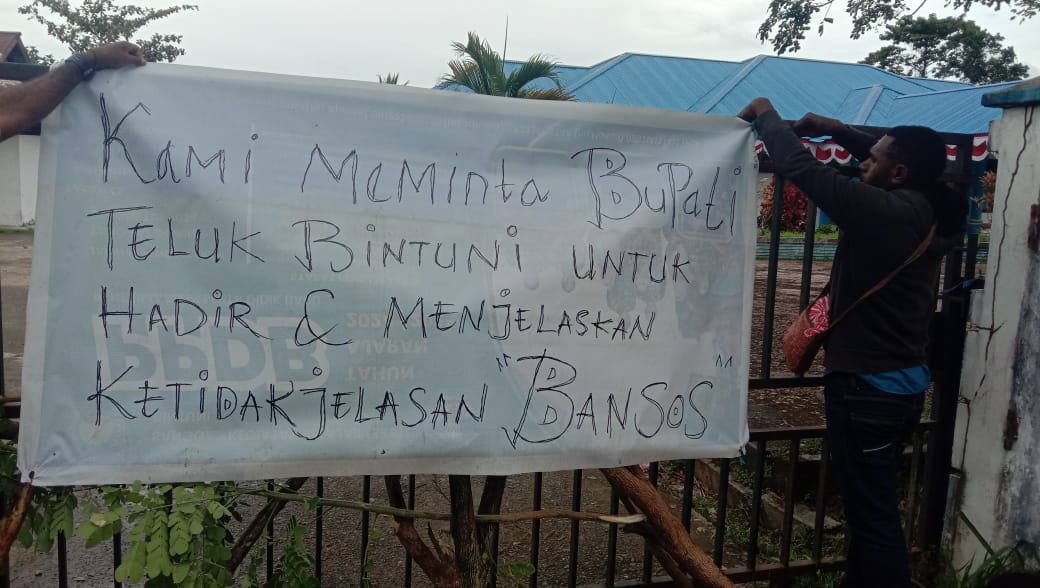 Kami Meminta Bupati
TELUK BINTUNI UNTUK
HADIR & MENJELASKAN
KETIDAKJELASAN "BANSOS"
PPDB
TAHUN
AJARAN